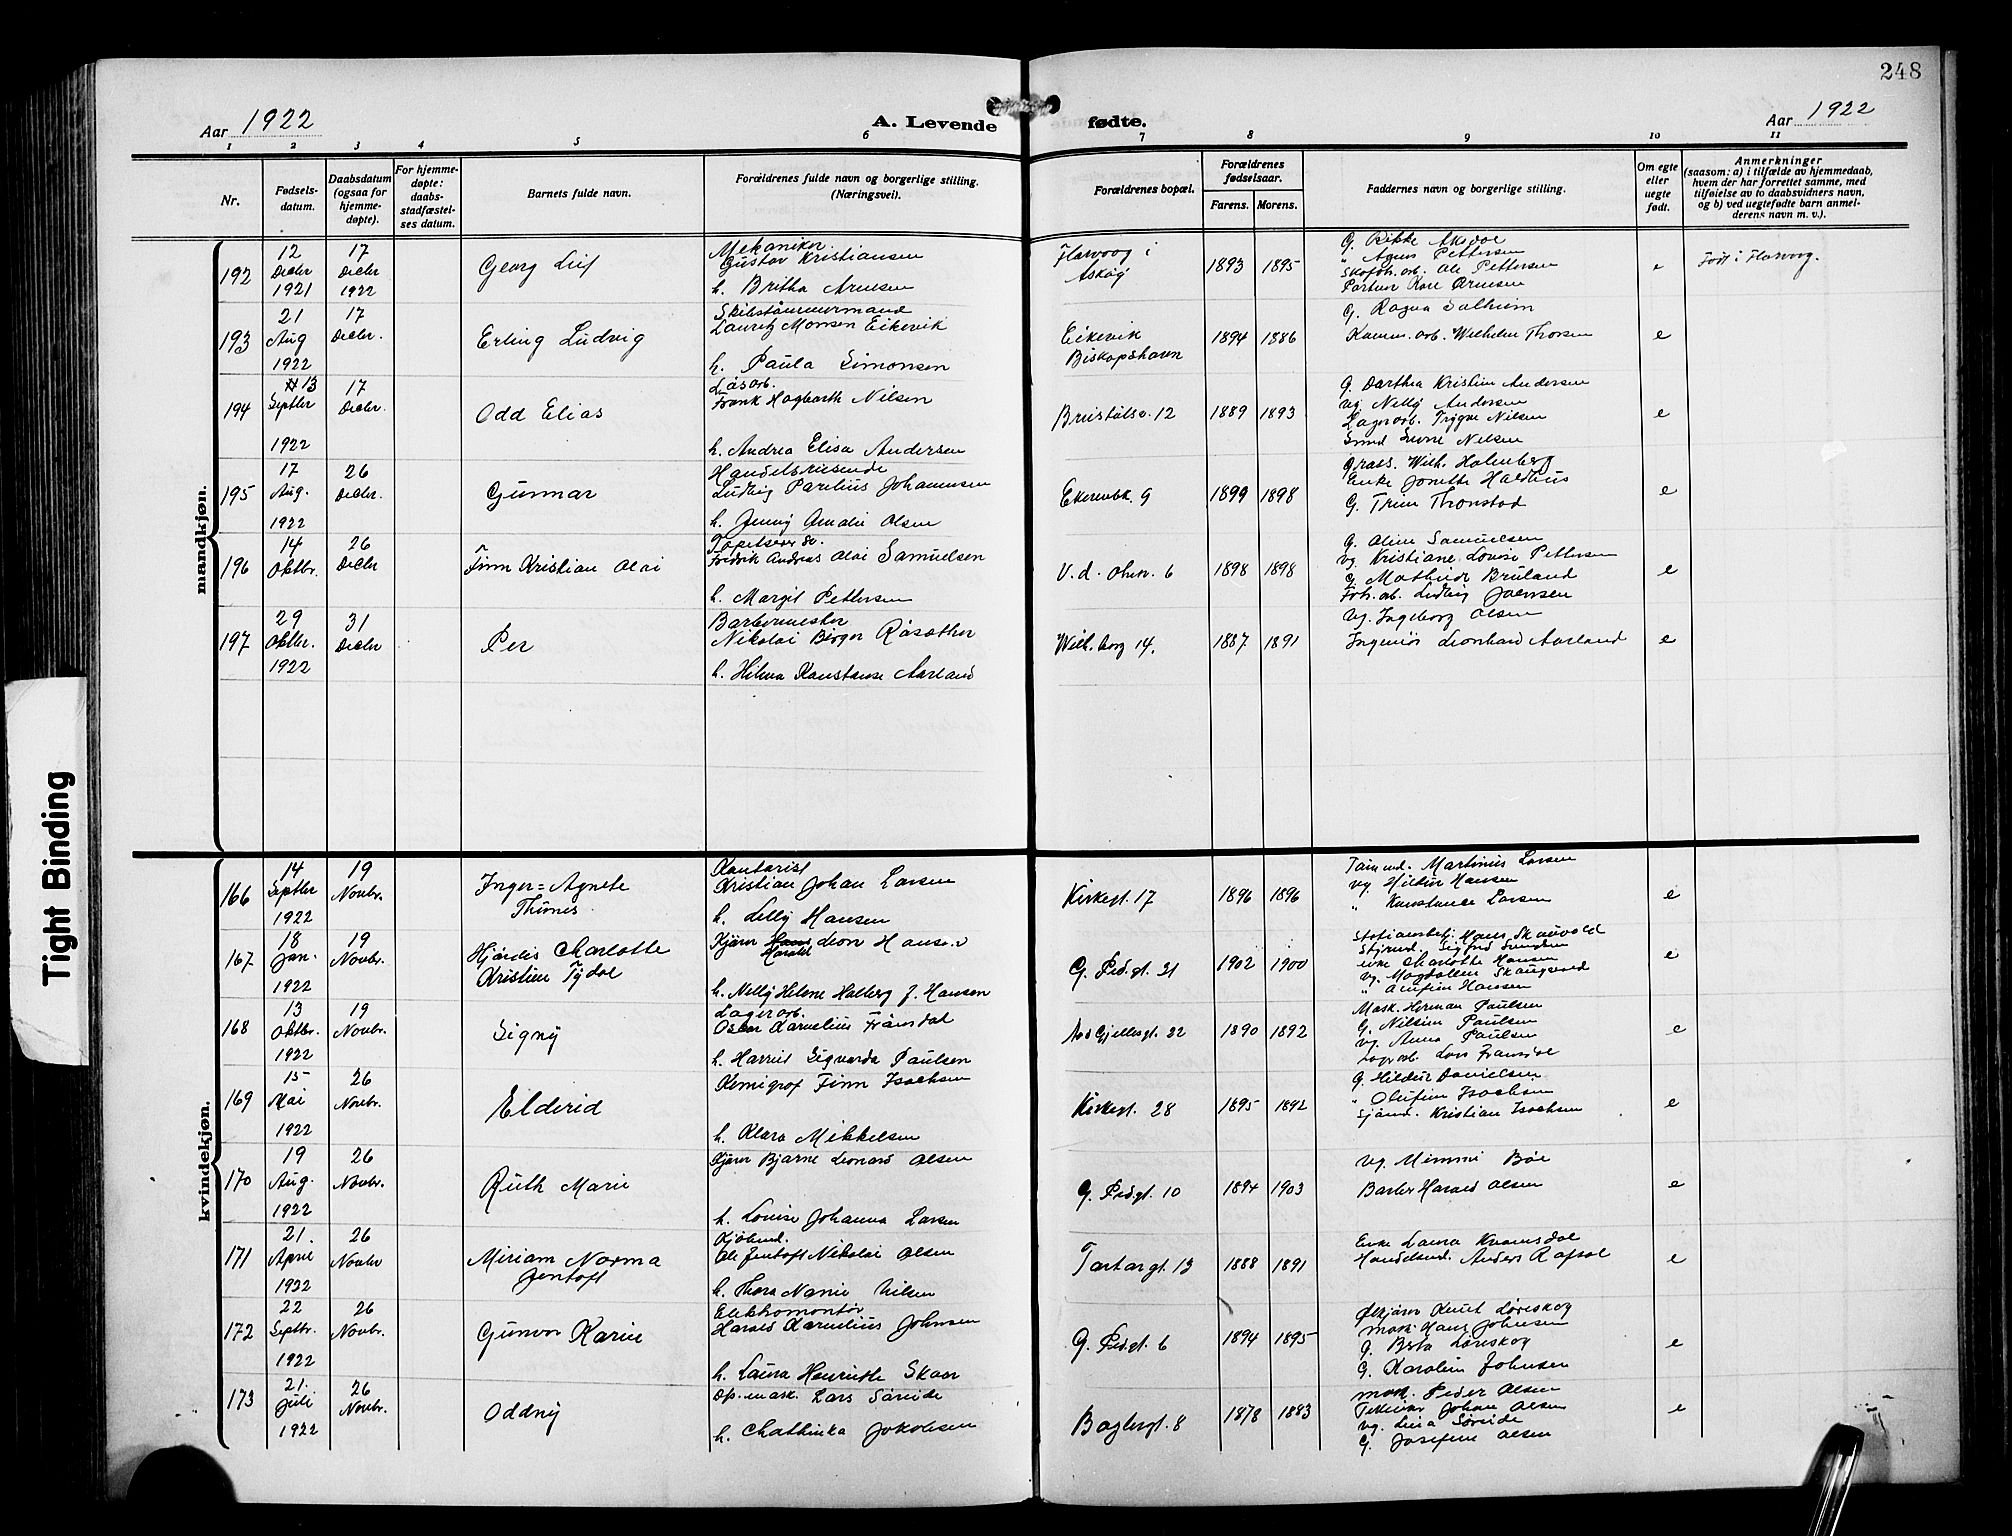 248
Aar 1922
A. Levende fødte.
Aar 1922
1 2 3 4 5 6 7 8 9 10 11
Nr.
Fødsels-
datum.
Daabsdatum
(ogsaa for
hjemme-
døpte).
For hjemme-
døpte:
daabs-
stadfæstel-
ses datum.
Barnets fulde navn.
Forældrenes fulde navn og borgerlige stilling.
(Næringsvei).
Forældrenes bopæl.
Forældrenes
fødselsaar.
Farens. Morens.
Faddernes navn og borgerlige stilling.
Om egte
eller
uegte
født.
Anmerkninger
(saasom: a) i tilfælde av hjemmedaab,
hvem der har forrettet samme, med
tilføielse av to daabsvidners navn,
og b) ved uegtefødte barn anmel-
derens navn m. v.).
mandkjøn.
192
12
Decbr
1921
17
Decbr
1922
Georg Leif
Mekaniker
Gustav Kristiansen
h. Britha Arnesen
Florvaag i
Askøy
1893 1895
Agnes Pettersen
Ole Pettersen
e
Født i Florvaag.
193
21
Aug
1922
17
Decbr.
Erling Ludvig
Skibstømmermand
Lauritz Monsen Eikevik
h. Paula Simonsen
Eikevik
Biskopshavn
1894 1886
G. Ragna Solheim
Wilhelm Thorsen
e
194
13
Septbr
1922
17
Decbr.
Odd Elias
Løsarb.
Frank Hagbarth Nilsen
h. Andrea Elisa Andersen
12
1889 1893
G. Dorthea Kristine Andersen
Nelly Andersen
Lagerarb. Trygve Nilsen
Nilsen
e
195
17
Aug.
1922
26
Decbr.
Gunnar
Handelsreisende
Ludvig Parelius Johannesen
h. Jenny Amalie Olsen
9
1899 1898
Wilh. Holmberg
Enke Jonette
G. Trine Thronstad
e
196
14
Oktbr.
26
Decbr
Finn Kristian Olai
Fredrik Andreas Olai Samuelsen
h. Margit Pettersen
6
1898 1898
G. Oline Samuelsen
Kristiane Lovise Pettersen
G. Mathilde Bruland
Ludvig
e
197
29
Oktbr.
1922
31
Decbr
Per
Barbermester
Nikolai Birger Råsæther
h. Hilma Konstanse Aarland
Wilh. borg 14.
1887 1891
Ingeborg Olsen
Ingeniør Leonhard Aarland
e
kvindekjøn.
166
14
Septbr
1922
19
Novbr.
Inger=Agnete
Thunes
Kontorist
Kristian Johan Larsen
h. Lelly Hansen
Kirkegt. 17
1896 1896
Martinius Larsen
Hildur Hansen
" Konstance Larsen
e
167
18
Jan.
1922
19
Novbr.
Hjørdis Charlotte
Kristine Tydal
Kjører Hans Leon Hansen
Harald
h. Nelly Helene Halberg f. Hansen
G. Pedgt. 31
1902 1900
Hans Skauvold
enke Charlotte Hansen
e
168
13
Oktbr.
1922
19
Novbr.
Signy
Lagerarb.
Oscar Kornelius Framdal
h. Harrid Sigvarda Paulsen
22
1890 1892
Mask. Herman Paulsen
G. Nilsine Paulsen
vg. Anna Paulsen
e
169
15
Mai
1922
26
Novbr.
Elderid
Kemigraf Finn Isachsen
h. Klara Mikkelsen
Kirkegt. 28
1895 1892
G. Hildur Danielsen
" Olufine Isachsen
Sjømd. Kristian Isachsen
e
170
19
Aug.
1922
26
Novbr.
Ruth Marie
Kjører Bjarne Leonard Olsen
h. Louise Johanna Larsen
G. Pedgt. 10
1894 1903
vg. Mimmi Bøe
Barber Harald Olsen
e
171
21.
April
1922
26
Novbr
Miriam Norma
Jentoft
Kjøbmd.
Ole Jentoft Nikolai Olsen
h. Thora Nanie Nilsen
Tartargt. 13
1888 1891
Enke Laura
Anders
e
172
22
Septbr.
1922
26
Novbr.
Gunvor Karin
Elektromontør
Harald Kornelius Johnsen
h. Laura Henriette Skaar
G. Pedgt. 6
1894 1895
Knut Løreskog
Mask. Hans Johnsen
G. Berta Løreskog
G. Karoline Johnsen
e
173
21.
Juli
1922
26
Novbr.
Oddny
Op. mask. Lars Søreide
h. Chathinka Jakobsen
Baglergt. 8
1878 1883
Mask. Peder Olsen
Johan Olsen
vg. Lina Søreide
G. Josefine Olsen
e
Tight Binding